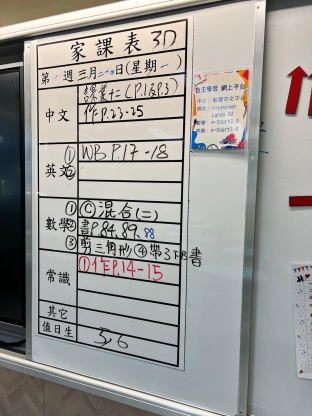 家課表 3D
第 週 三月二十日(星期一)
中文
課業十二(P.1及P.3)
作P.23-25
英文
① WB P.17-18
②
數學
① ⓒ混合(二)
② 書P.84,89,88
③ 剪三角形 ④ 帶3下B書
常識
① 作P.14-15
其它
值日生
5,6
自主學習 網上平台
中文:智愛中文平台
英文:i-Learner
數學:e-Smart2.0
常識:e-Smart2.0